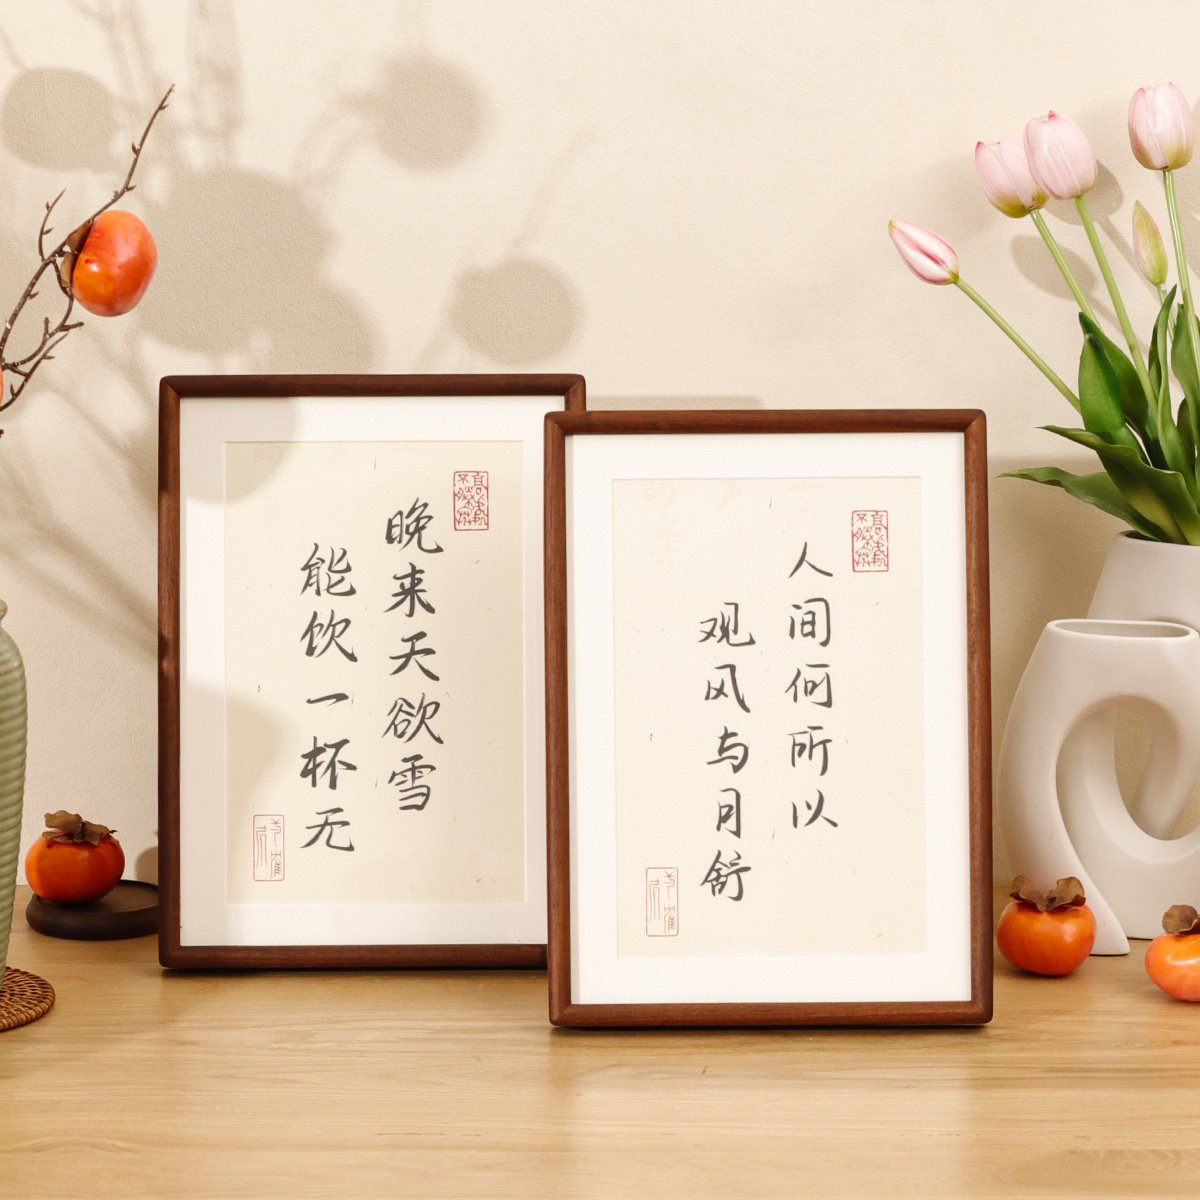 晚来天欲雪
能饮一杯无
人间何所以
观风与月舒